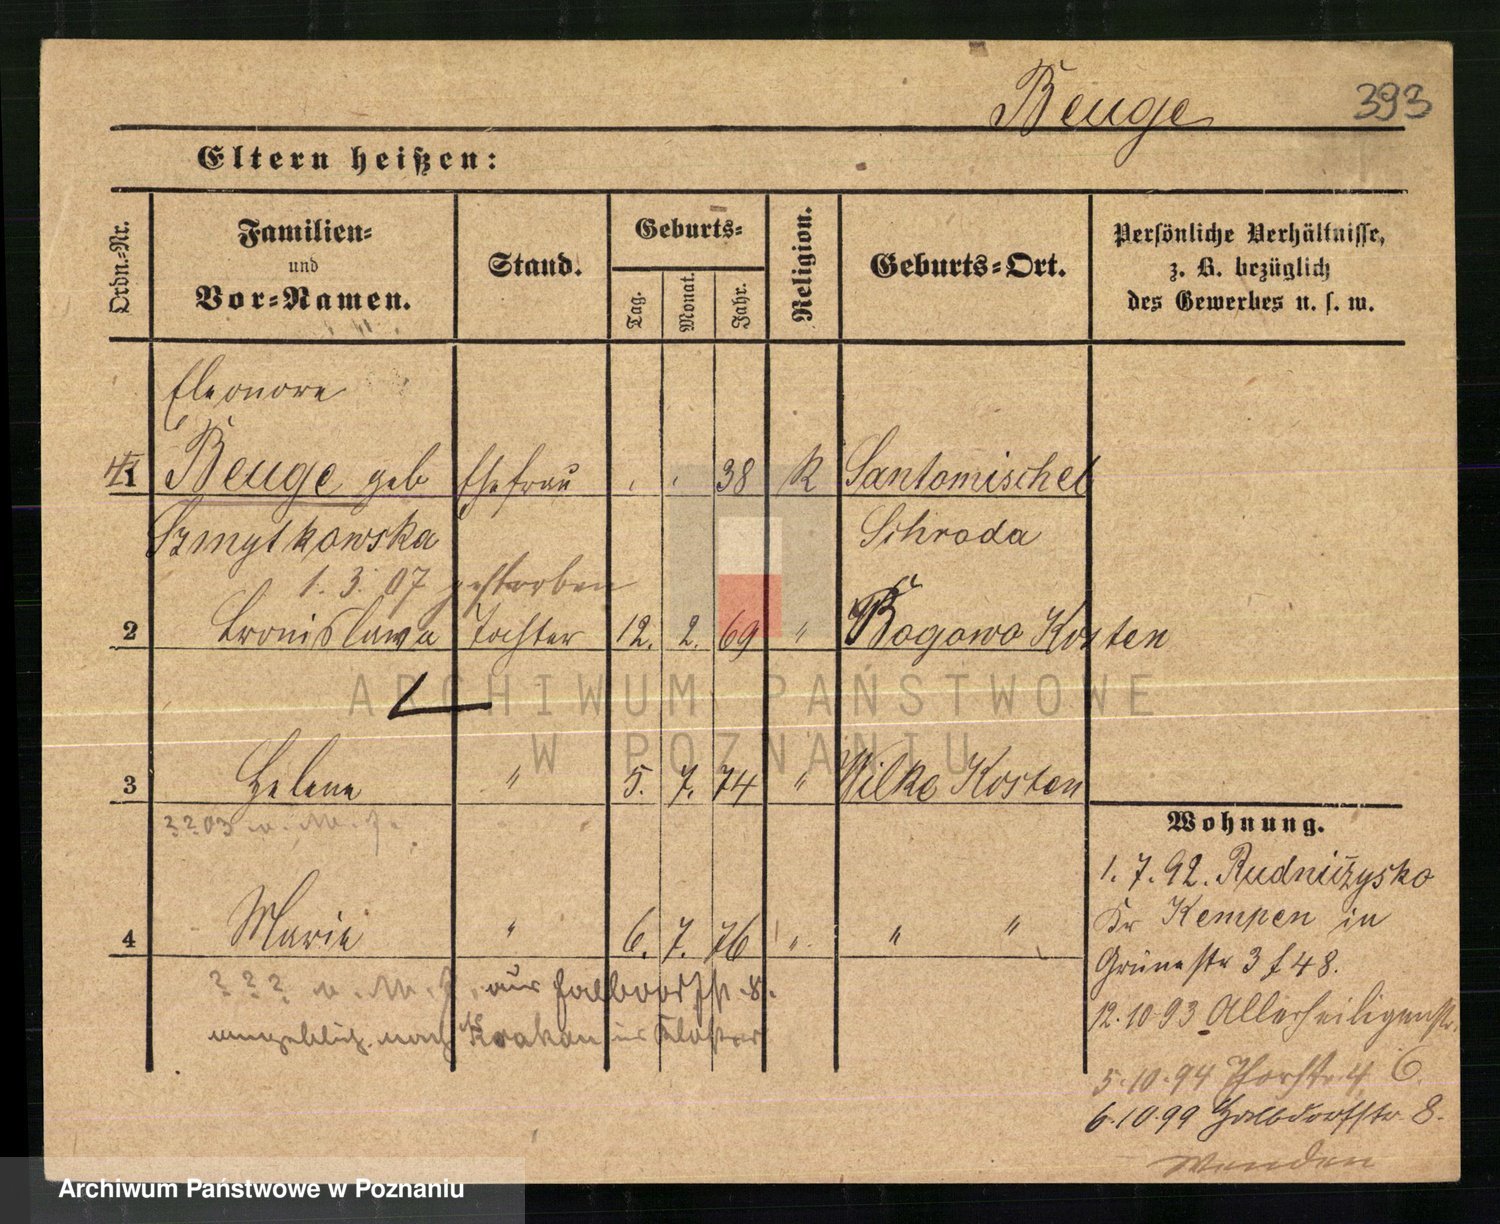 Beuge
393
Eltern heißen:
Ordn.-Nr.
Familien-
und
Vor-Namen.
Stand.
Geburts-
Tag.
Monat.
Jahr.
Religion.
Geburts-Ort.
Persönliche Verhältnisse,
z. B. bezüglich
des Gewerbes u. s. w.
Eleonore
1 Beuge geb Ehefrau . . 38 K Santomischel
Szmytkowska Schroda
1. 3. 07 gestorben
2 Bronislawa Tochter 12. 2. 69 " Rogowo Kosten
ARCHIWUM PAŃSTWOWE
W POZNANIU
3 Helene " 5. 7. 74 " Wilke Kosten
Wohnung.
1. 7. 92. Rudniczysko
Kr Kempen in
4 Marie " 6. 7. 76 " " "
Grünestr 3 f 48.
? ? ? aus Halbdorfstr. 8.
12.10.93 Allerheiligenstr.
angeblich nach Krakau ins Kloster
5.10.94 Thorstr. 4 6.
6.10.99 Halbdorfstr. 8.
Archiwum Państwowe w Poznaniu